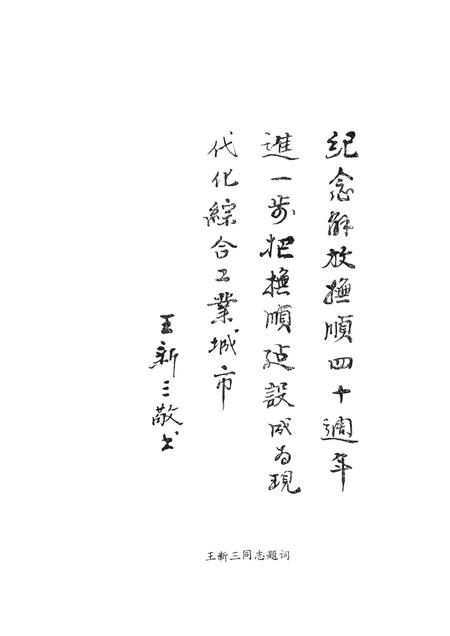 紀念解放撫順四十週年
進一步把撫順建設成為現
代化綜合工業城市
王新三敬书
王新三同志题词